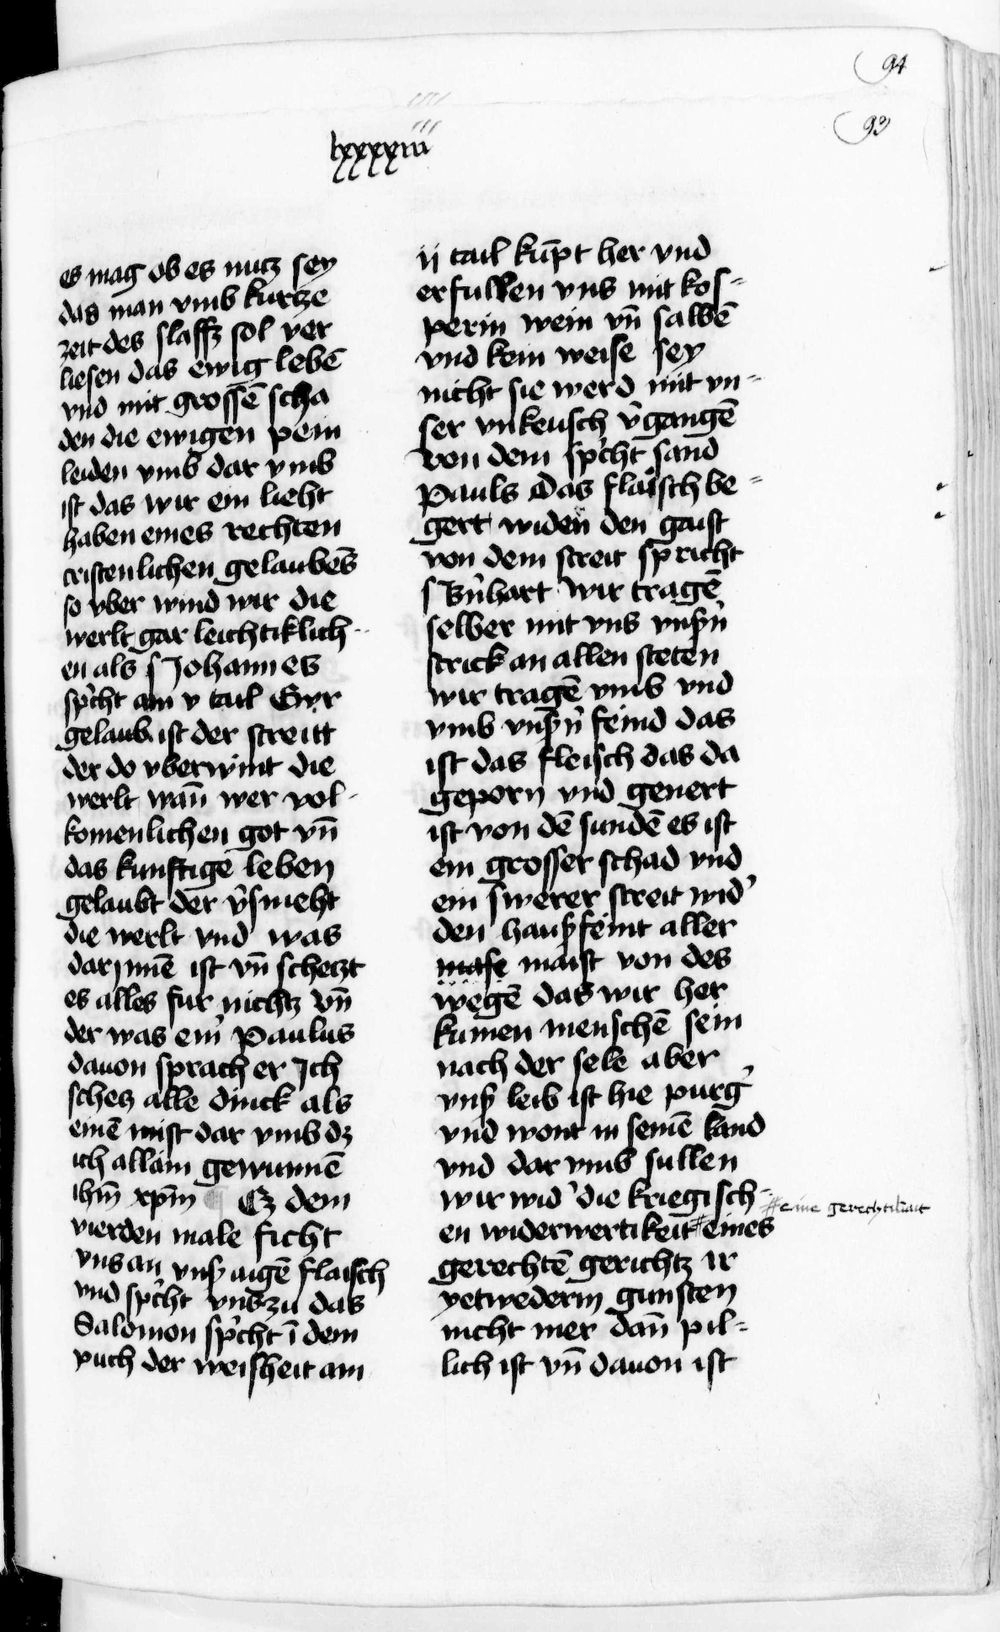 94
93
lxxxxiii
es mag ob es nutz sey
das man vmb kurtze
zeit des slaffz sol ver
liesen das ewig lebē
vnd mit grossē scha
den die ewigen pein
leiden vmb dar vmb
ist das wir ein lieht
haben eines rechten
cristenlichen gelaubēs
so vber wind wir die
werlt gar leichtiklich
en als s Johannes
sp̄cht am v tail Ewr
gelaub ist der streitt
der do vberwint die
werlt wan̄ wer vol-
komenlichen got vn̄
das kunftige leben
gelaubt der v̄smeht
die werlt vnd was
darjnnē ist vn̄ schetzt
es alles fur nichtz vn̄
der was ein' Paulus
dauon sprach er Ich
schetz alle dinck als
einē mist dar vmb dz
ich allain gewunnē
ihm̄ xpm̄ ¶ Cz dem
vierden male ficht
vns an vnß aigē flaisch
vnd sp̄cht vns zu das
Salomon sp̄cht ī dem
puch der weisheit am
ij tail kūpt her vnd
erfullen vns mit kos-
perin wein vn̄ salbē
vnd kein weise sey
nicht sie werd mit vn-
ser vnkeusch v̄gangē
von dem sp̄cht sand
Pauls Das flaisch be-
gert widen den gaist
von dem streit spricht
s Bn̄hart Wir tragē
selber mit vns vnßn̄
strick an allen steten
wir tragē vmb vnd
vmb vnßn̄ feind das
ist das fleisch das da
geporn vnd genert
ist von dē sundē es ist
ein grosser schad vnd
ein swerer streit wid'
den haupfeint aller
mase maist von des
wegē das wir her
kumen menschē sein
nach der sele aber
vnß leib ist hie purg'
vnd wont in seinē land
vnd dar vmb sullen
wir wid' die kriegisch-
en widerwertikeit # eines
# eine gerechtikait
gerechtē gerichtz ir
yetwederm gunsten
nicht mer dan̄ pil-
lich ist vn̄ dauon ist